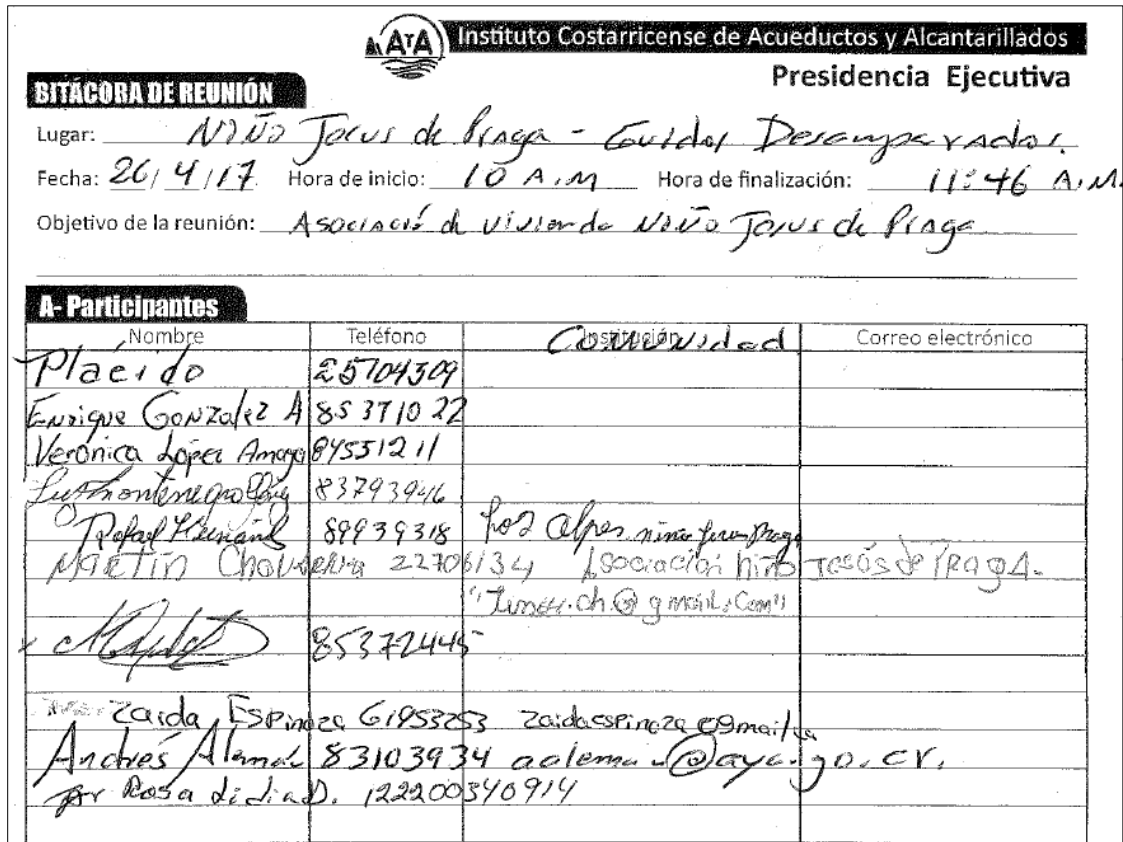 AyA Instituto Costarricense de Acueductos y Alcantarillados
Presidencia Ejecutiva
BITÁCORA DE REUNIÓN
Lugar: Niño Jesus de Praga - Guidos Desamparados.
Fecha: 26/4/17 Hora de inicio: 10 A.M Hora de finalización: 11:46 A.M.
Objetivo de la reunión: Asociació de vivienda Niño Jesus de Praga
A- Participantes
Nombre Teléfono Institución Comunidad Correo electrónico
Plácido 25704309
Enrique Gonzalez A 85371022
Verónica López Amaya 84531211
83793946
Rafael 89939318 Los Alpes niño Jesus Praga
Martín 22706134 Asociación niño Jesós de Praga.
85372445
Zaida Espinoza 61853253
Andrés Alemán 83103934 aaleman@aya.go.cr.
Rosa Lidia D. 122200340914